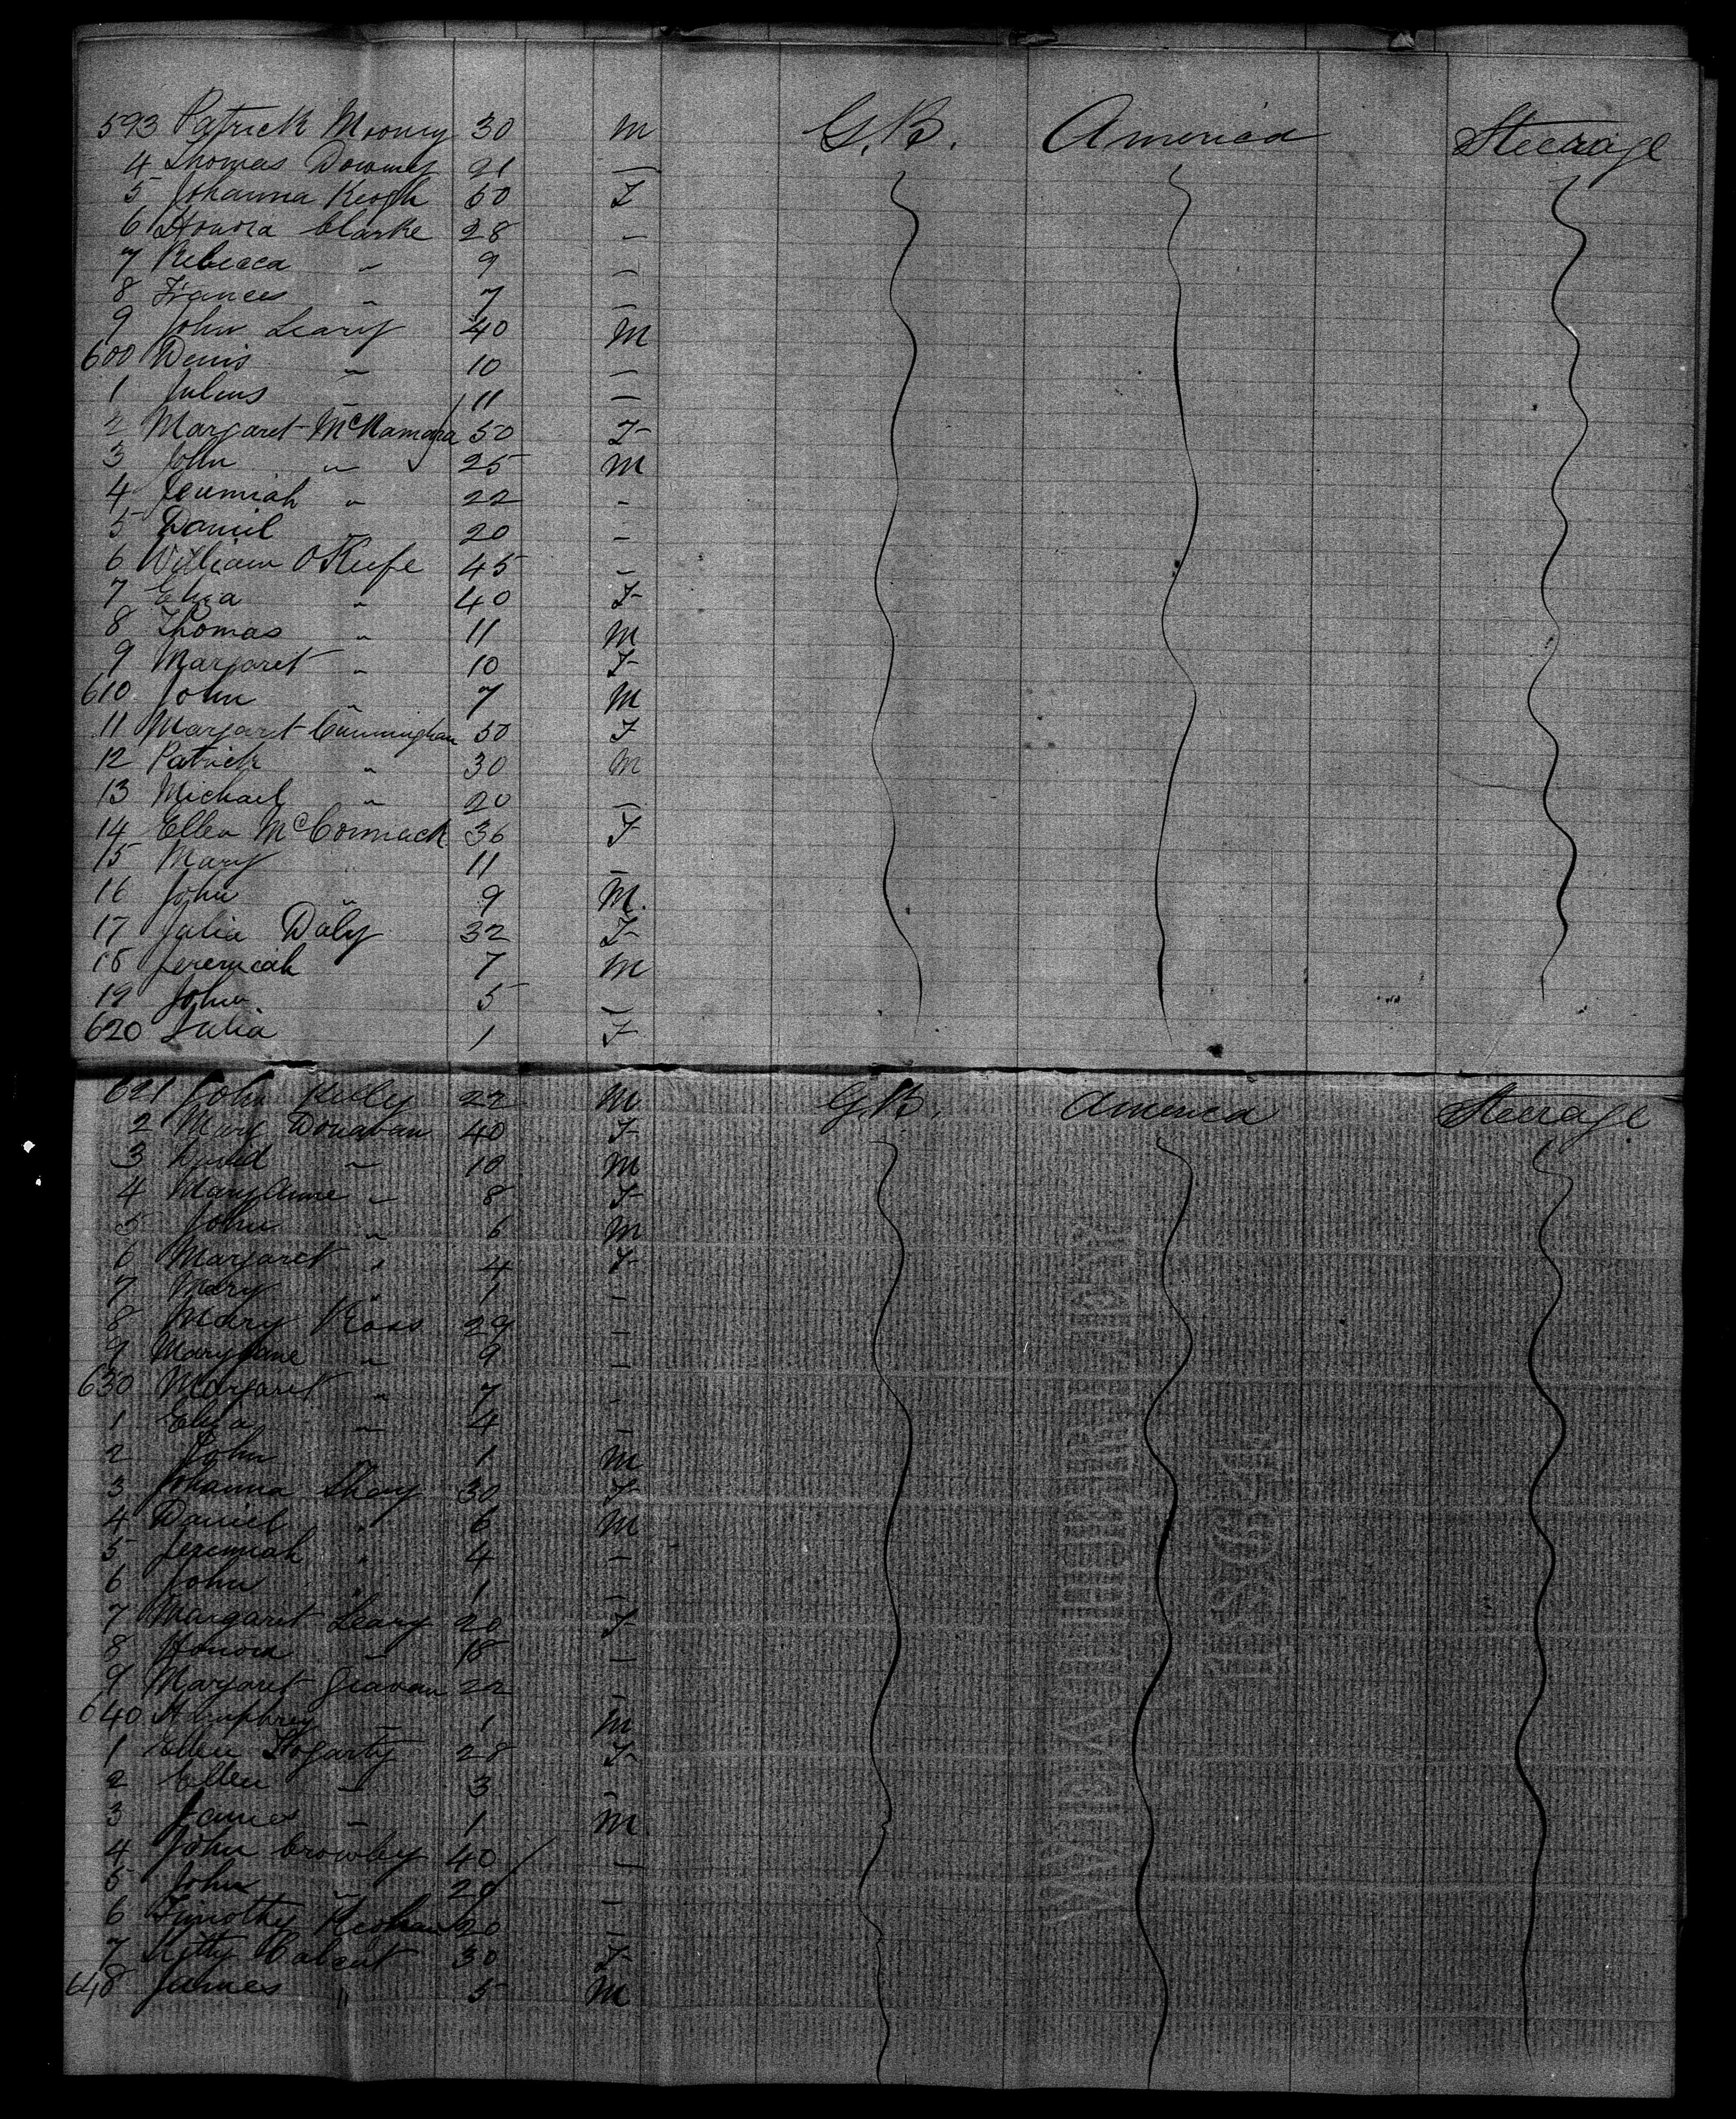 593 Patrick Mooney 30 M G.B. America Steerage
4 Thomas Downey 21 —
5 Johanna Keogh 60 F
6 Honora Clarke 28 —
7 Rebecca " 9 —
8 Frances " 7 —
9 John Leary 40 M
600 Denis " 10 —
1 Julius " 11 —
2 Margaret McNamara 50 F
3 John " 25 M
4 Jeremiah " 22 -
5 Daniel " 20 -
6 William O'Keefe 45 -
7 Eliza " 40 F
8 Thomas " 11 M
9 Margaret " 10 F
610 John " 7 M
11 Margaret Cunningham 50 F
12 Patrick " 30 M
13 Michael " 20 —
14 Ellen McCormack 36 F
15 Mary " 11 —
16 John " 9 M.
17 Julia Daly 32 F
18 Jeremiah 7 M
19 John 5 —
620 Julia 1 F
621 John Kelly 22 M G.B. America Steerage
2 Mary Donavan 40 F
3 David " 10 M
4 Mary Anne " 8 F
5 John " 6 M
6 Margaret " 4 F
7 Mary " 1 —
8 Mary Ross 29 —
9 Mary Jane " 9 —
630 Margaret " 7 -
1 Eliza " 4 —
2 John " 1 M
3 Johanna 30 F
4 Daniel " 6 M
5 Jeremiah " 4 —
6 John " 1 —
7 Margaret Leary 20 F
8 Honora " 18 —
9 Margaret 22 —
640 Humphrey " 1 M
1 Ellen Fogarty 28 F
2 Ellen " 3 —
3 James " 1 M
4 John Crowley 40 —
5 John " 20 —
6 Timothy Keohan 20 —
7 Kitty 30 F
648 James " 5 M
1864